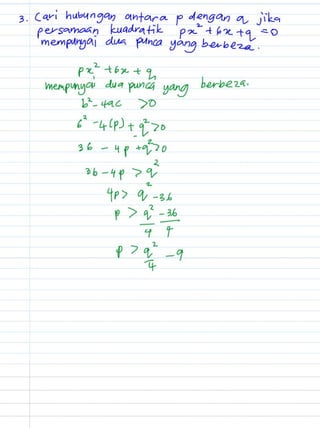 3. Cari hubungan antara p dengan q jika
persamaan kuadratik px² + 6x + q = 0
mempunyai dua punca yang berbeza.
px² + 6x + q
mempunyai dua punca yang berbeza.
b² - 4ac > 0
6² - 4(p) + q² > 0
36 - 4p + q² > 0
36 - 4p > q²
4p > q² - 36
p > q²/4 - 36/4
p > q²/4 - 9